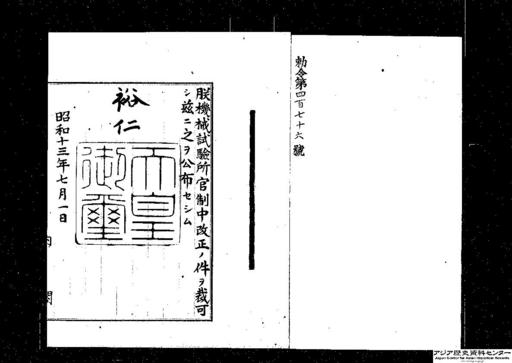 勅令第四百七十六號
朕機械試驗所官制中改正ノ件ヲ裁可
シ茲ニ之ヲ公布セシム
裕仁
天皇御璽
昭和十三年七月一日
内閣
アジア歴史資料センター
Japan Center for Asian Historical Records